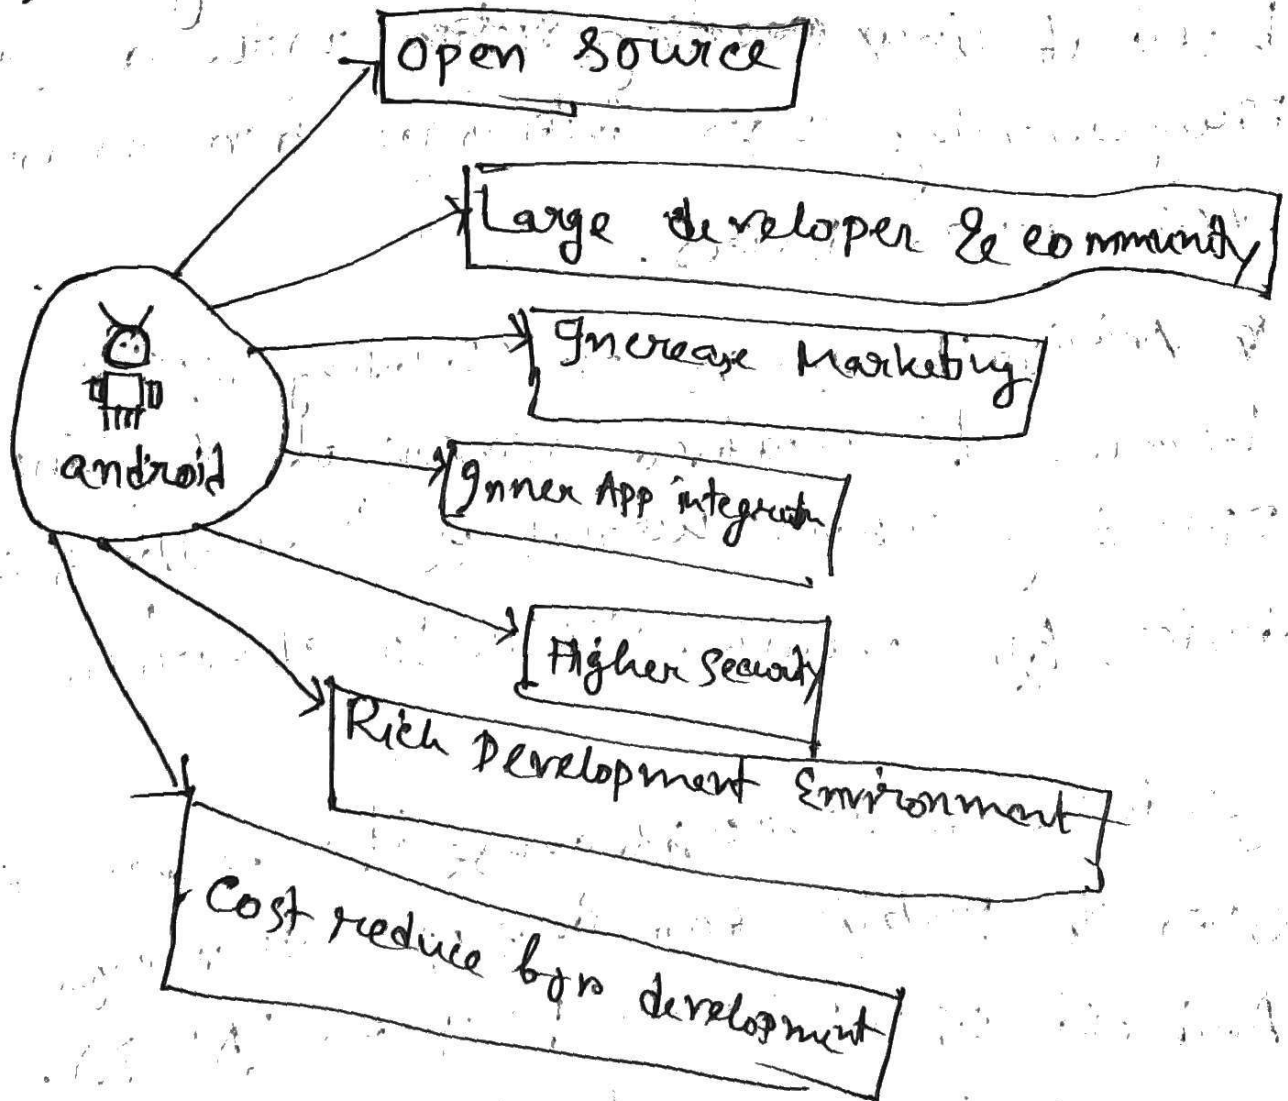 Open Source
Large developer & community
Increase Marketing
android
Inner App integration
Higher Security
Rich Development Environment
Cost reduce development